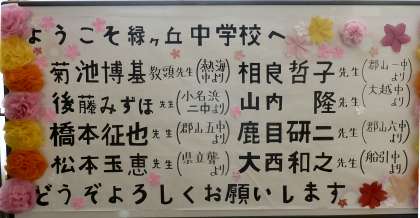 ようこそ緑ヶ丘中学校へ
菊池博基教頭先生(熱海中より) 相良哲子先生(郡山一中より)
後藤みずほ先生(小名浜二中より) 山内 隆先生(大越中より)
橋本征也先生(郡山五中より) 鹿目研二先生(郡山六中より)
松本玉恵先生(県立聾より) 大西和之先生(船引中より)
どうぞよろしくお願いします